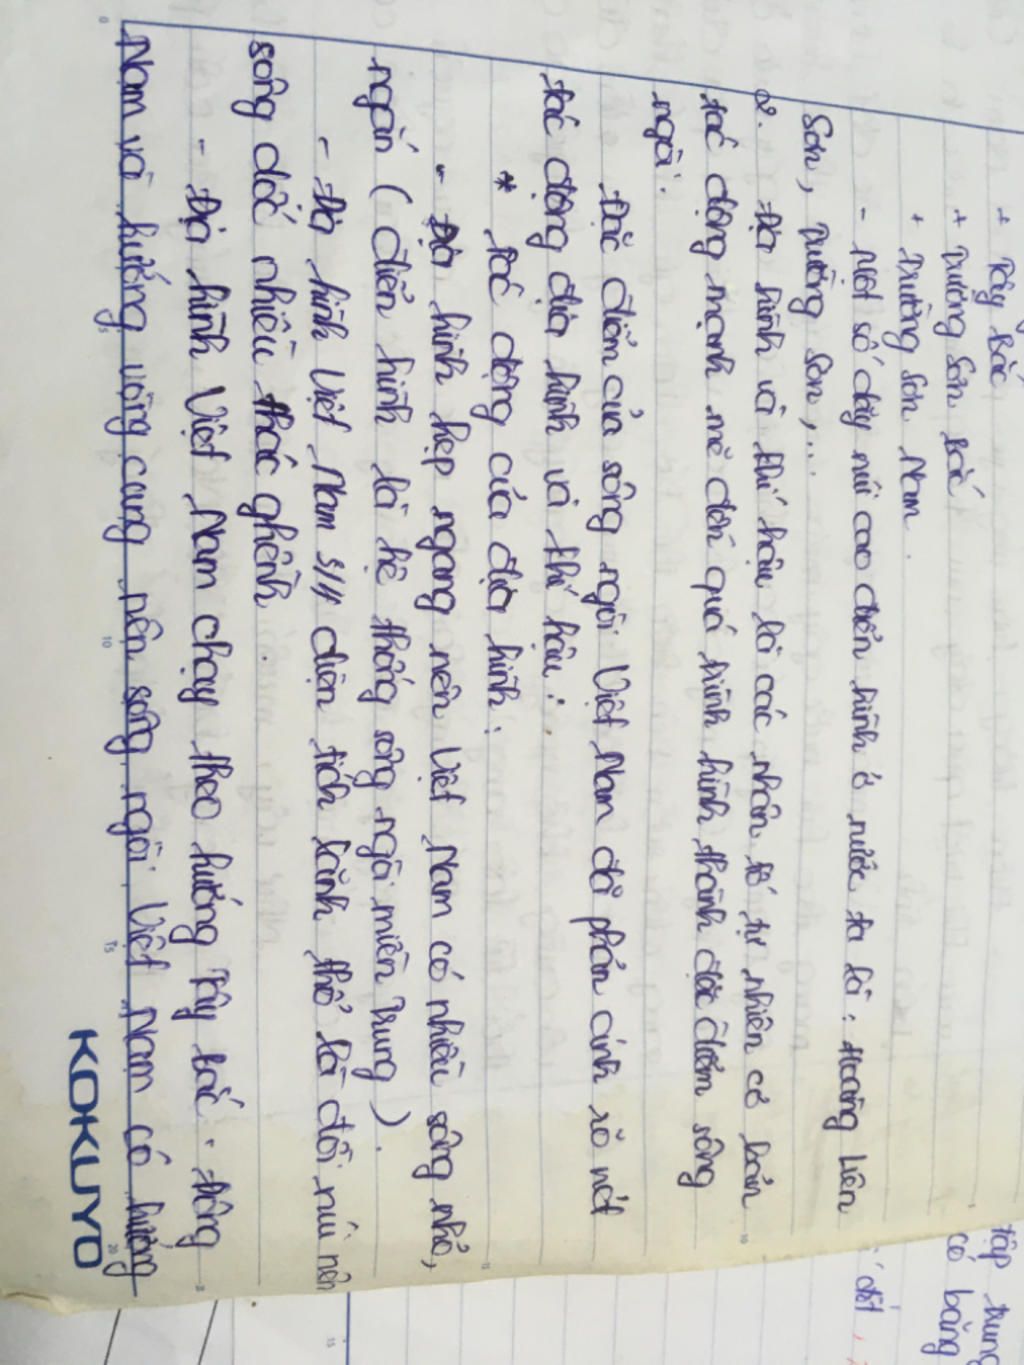 + Tây Bắc
+ Trường Sơn Bắc
+ Trường Sơn Nam.
- Một số dãy núi cao điển hình ở nước ta là: Hoàng Liên
Sơn, Trường Sơn,...
2. Địa hình và khí hậu là các nhân tố tự nhiên cơ bản
tác động mạnh mẽ đến quá hình hình thành đặc điểm sông
ngòi.
Đặc điểm của sông ngòi Việt Nam đã phản ánh rõ nét
tác động địa hình và khí hậu:
* Tác động của địa hình:
- Địa hình hẹp ngang nên Việt Nam có nhiều sông nhỏ,
ngắn (điển hình là hệ thống sông ngòi miền Trung).
- Địa hình Việt Nam 3/4 diện tích lãnh thổ là đồi núi nên
sông dốc nhiều thác ghềnh.
- Địa hình Việt Nam chạy theo hướng Tây bắc - Đông
Nam và hướng vòng cung nên sông ngòi Việt Nam có hướng
KOKUYO
tập trung
có bằng